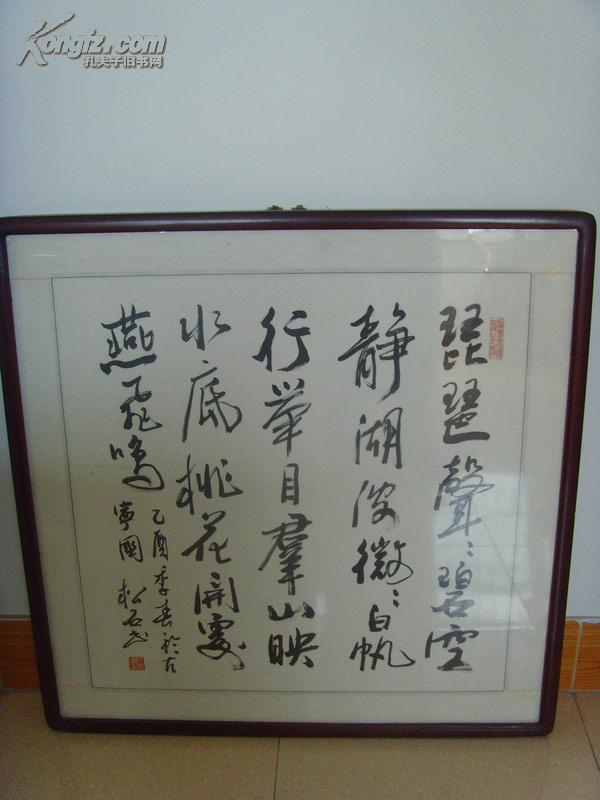 Kongfz.com
孔夫子旧书网
琵琶聲〻碧空
靜湖波微〻白帆
行舉目羣山映
水底桃花開處
燕飛鳴
乙酉季春於古
寧國 松石書